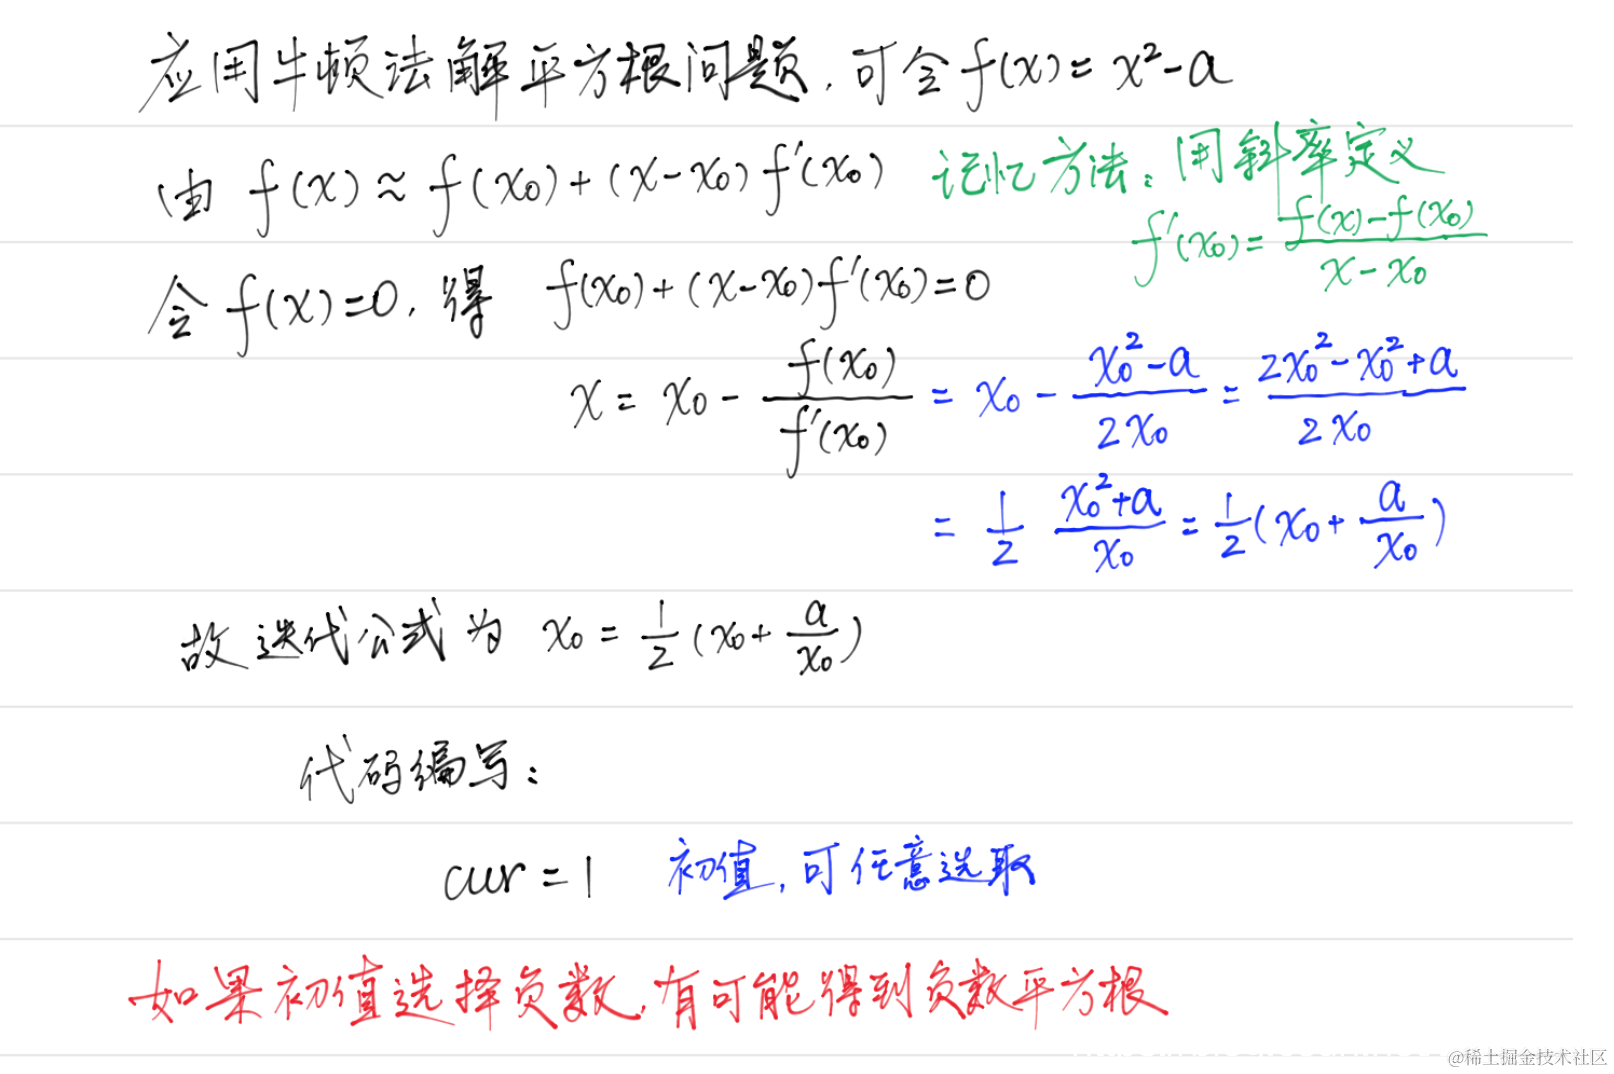 应用牛顿法解平方根问题，可令 f(x) = x² - a
由 f(x) ≈ f(x₀) + (x - x₀) f'(x₀) 记忆方法：用斜率定义
f'(x₀) = \frac{f(x) - f(x₀)}{x - x₀}
令 f(x) = 0，得 f(x₀) + (x - x₀) f'(x₀) = 0
x = x₀ - \frac{f(x₀)}{f'(x₀)} = x₀ - \frac{x₀² - a}{2x₀} = \frac{2x₀² - x₀² + a}{2x₀}
= \frac{1}{2} \frac{x₀² + a}{x₀} = \frac{1}{2} (x₀ + \frac{a}{x₀})
故迭代公式为 x₀ = \frac{1}{2} (x₀ + \frac{a}{x₀})
代码编写：
cur = 1 初值，可任意选取
如果初值选择负数，有可能得到负数平方根
@稀土掘金技术社区